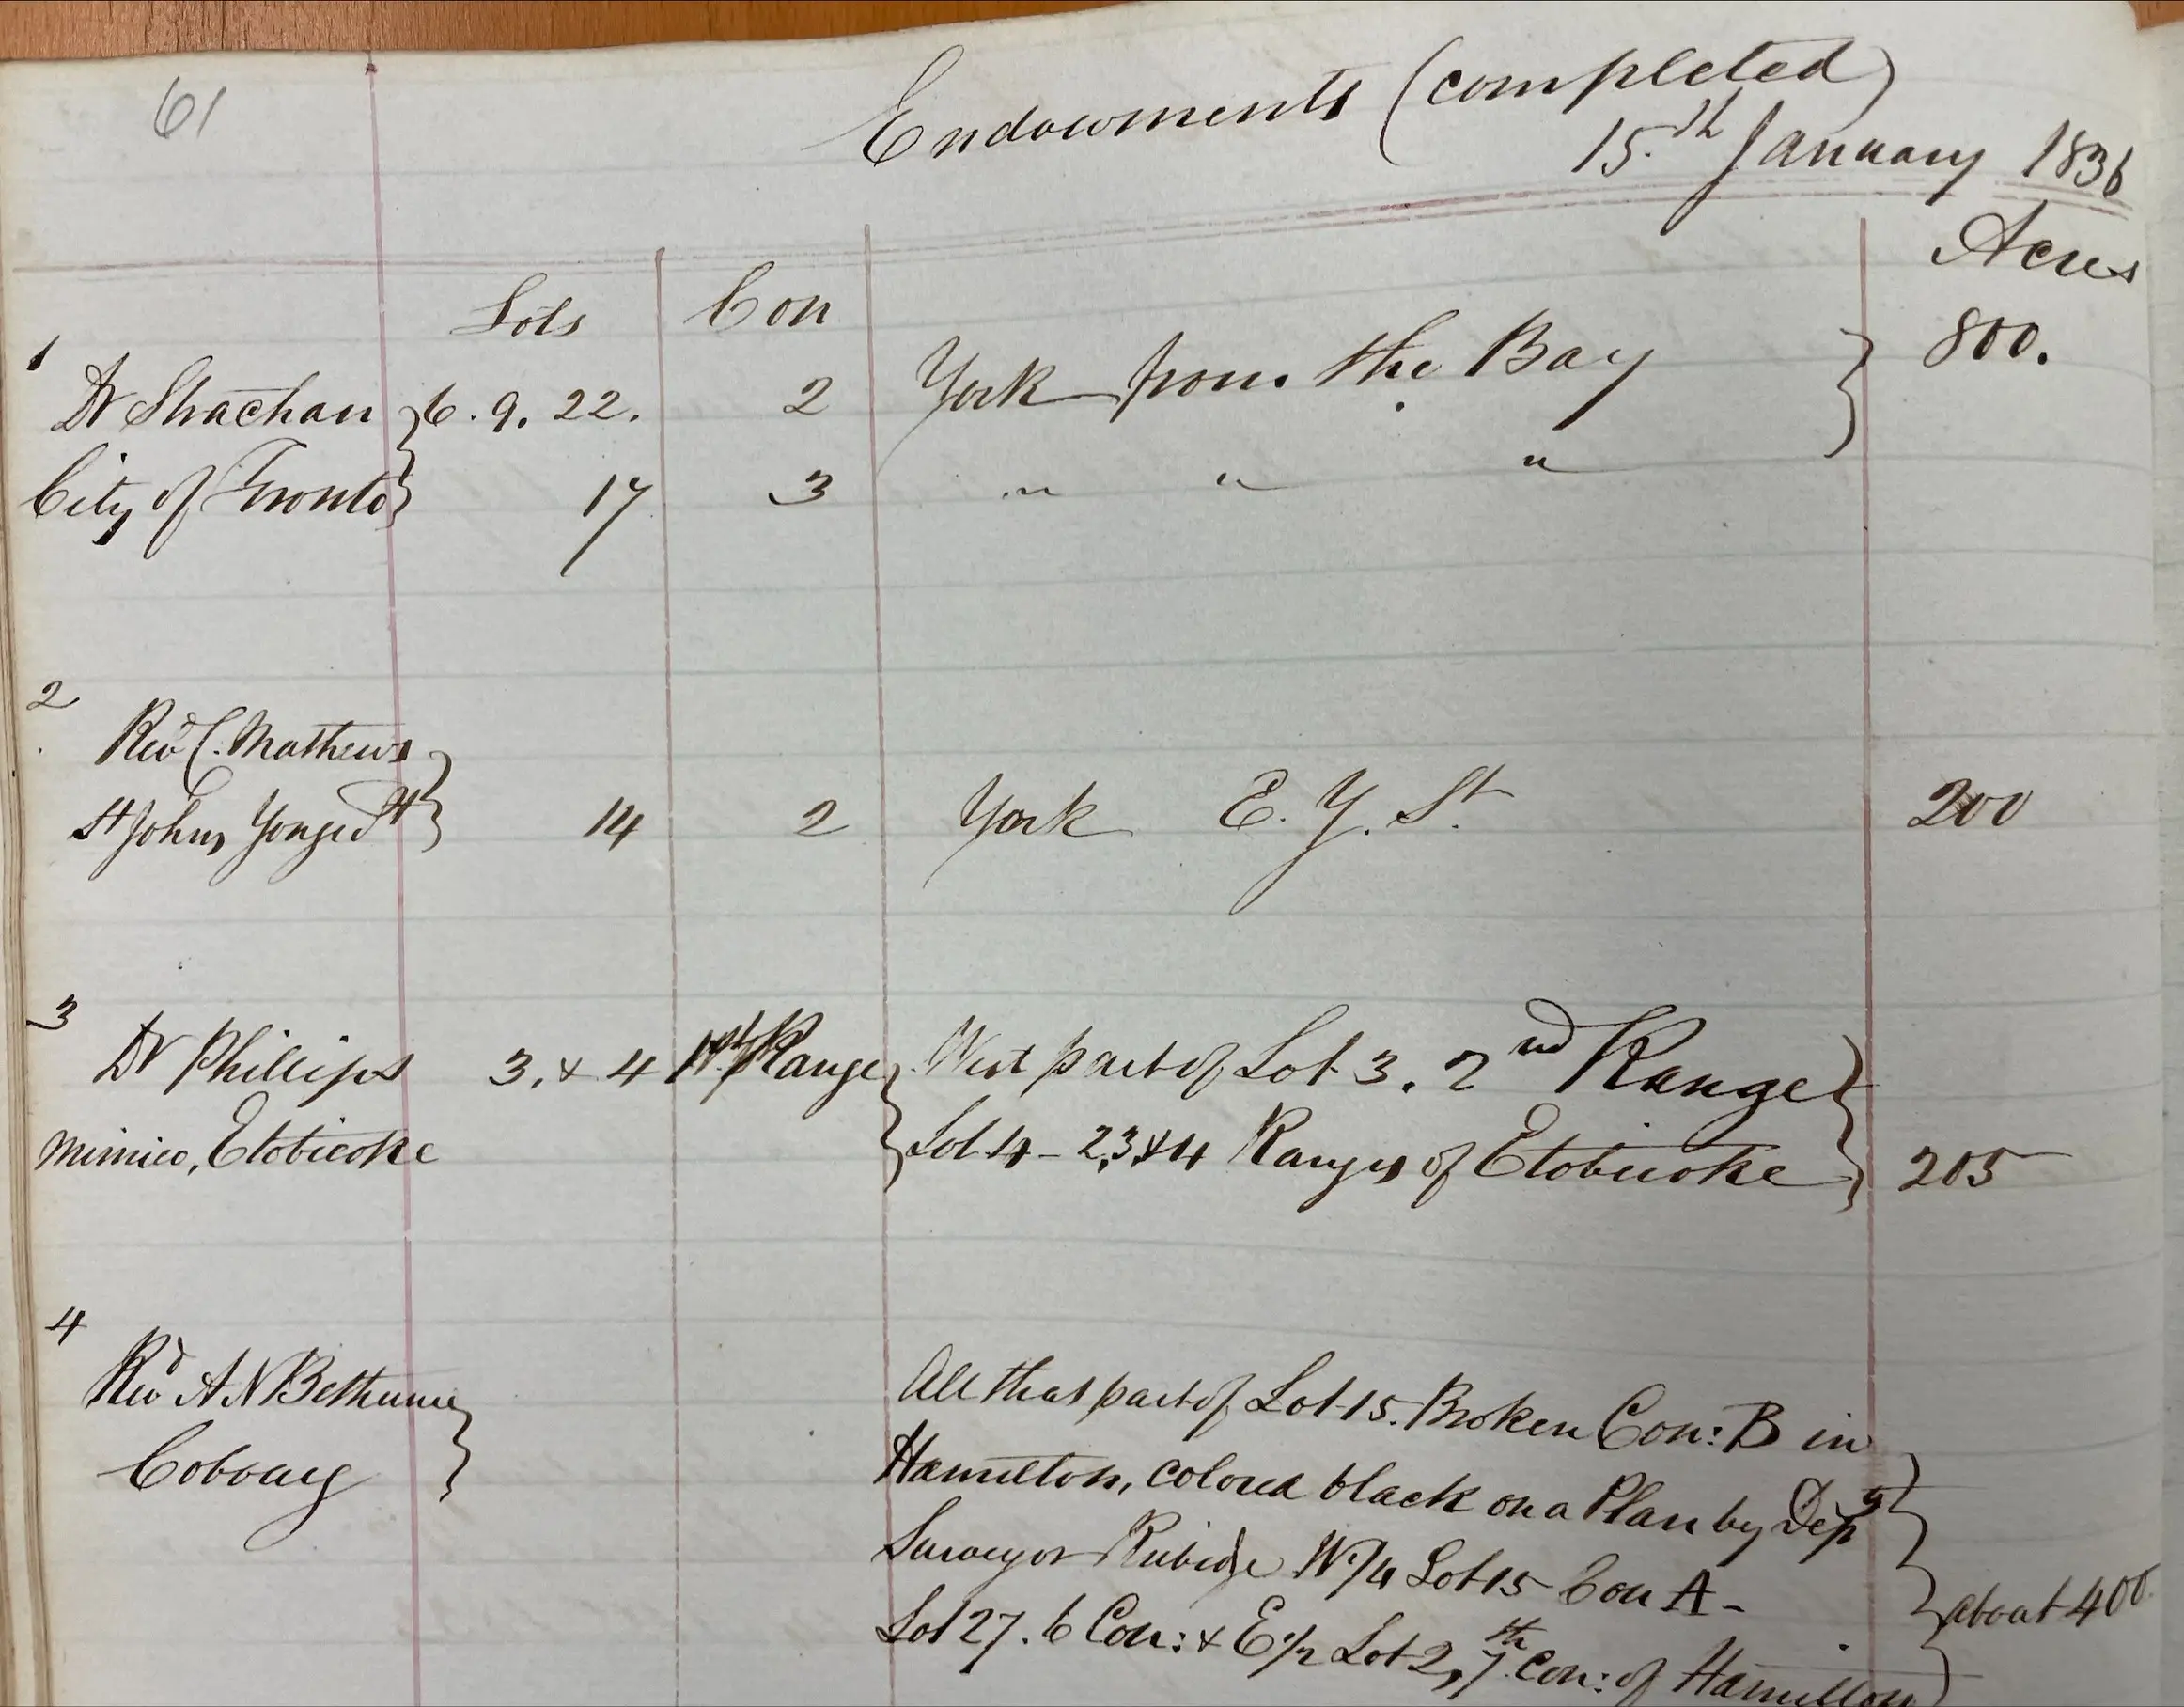 61
Endowments (completed)
15th January 1836
Acres
Lots Con
1 800.
Dr Strachan } 6. 9. 22. 2 York from the Bay }
City of Toronto } 17 3 " " "
2
Revd C. Mathews }
St Johns Yonge St } 14 2 York E. Y. St. 200
3
Dr Phillips 3. & 4 1st Range } West part of Lot 3. 2nd Range }
Mimico, Etobicoke Lot 4 - 2,3 & 4 Ranges of Etobicoke } 205
4
Revd A N Bethune } All that part of Lot 15. Broken Con: B in
Cobourg Hamilton, colored black on a Plan by Depy
Surveyor Rubidge W. 1/4 Lot 15 Con A -
Lot 27. 6 Con: & E 1/2 Lot 2, 7th Con: of Hamilton } about 400